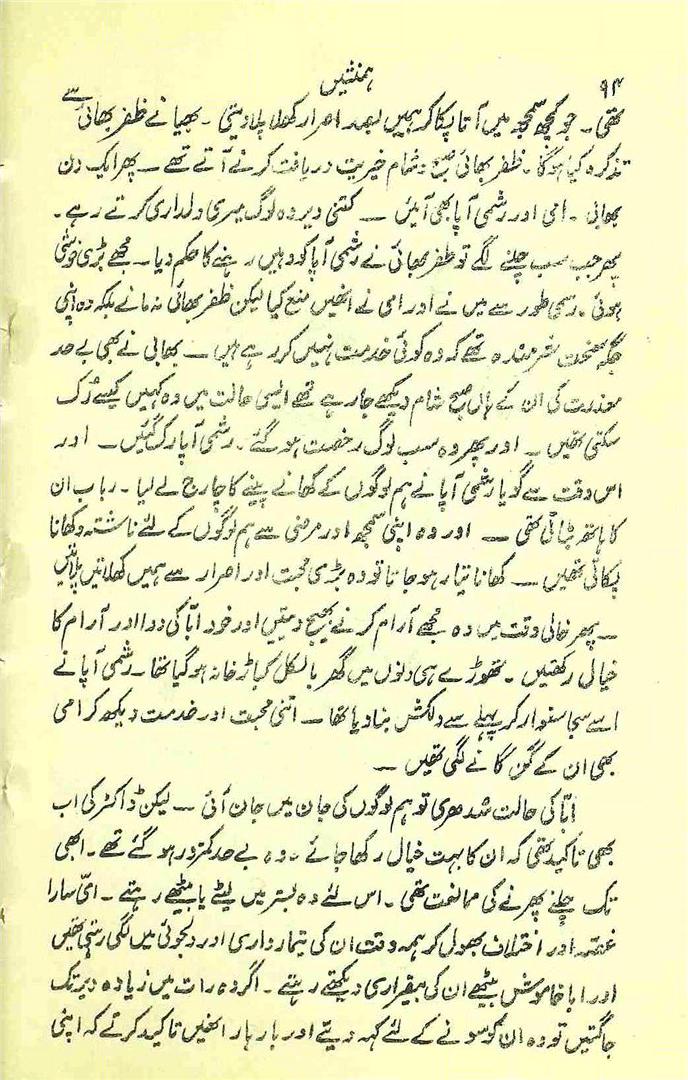 ۹۴
ہمنشیں
تھی۔ جو کچھ سمجھ میں آتا پکا کر ہمیں بصد اصرار کھلا پلا دیتی۔ بھیا نے ظفر بھائی سے
تذکرہ کیا ہوگا۔ ظفر بھائی صبح و شام خیریت دریافت کرنے آتے تھے — پھر ایک دن
بھابی۔ امی اور رشمی آپا بھی آئیں — کتنی دیر وہ لوگ میری دلداری کرتے رہے۔
پھر جب سب چلنے لگے تو ظفر بھائی نے رشمی آپا کو وہیں رہنے کا حکم دیا۔ مجھے بڑی خوشی
ہوئی۔ رسمی طور سے میں نے اور امی نے انھیں منع کیا لیکن ظفر بھائی نہ مانے بلکہ وہ اپنی
جگہ سخت شرمندہ تھے کہ وہ کوئی خدمت نہیں کر رہے ہیں — بھابی نے بھی بے حد
معذرت کی ان کے ہاں صبح شام دیکھے جا رہے تھے ایسی حالت میں وہ کہیں کیسے رُک
سکتی تھیں۔ اور پھر وہ سب لوگ رخصت ہو گئے۔ رشمی آپا رک گئیں — اور
اس وقت سے گویا رشمی آپا نے ہم لوگوں کے کھانے پینے کا چارج لے لیا۔ رباب ان
کا ہاتھ بٹاتی تھی — اور وہ اپنی سمجھ اور مرضی سے ہم لوگوں کے لئے ناشتہ و کھانا
پکاتی تھیں — کھانا تیار ہو جاتا تو وہ بڑی محبت اور اصرار سے ہمیں کھلاتیں پلاتیں
— پھر خالی وقت میں وہ مجھے آرام کرنے بھیج دیتیں اور خود ابّا کی دوا اور آرام کا
خیال رکھتیں۔ تھوڑے ہی دنوں میں گھر بالکل کباڑ خانہ ہو گیا تھا۔ رشمی آپا نے
اسے سجا سنوار کر پہلے سے دلکش بنا دیا تھا — اتنی محبت اور خدمت دیکھ کر امی
بھی ان کے گن گانے لگی تھیں —
ابّا کی حالت سُدھری تو ہم لوگوں کی جان میں جان آئی — لیکن ڈاکٹر کی اب
بھی تاکید تھی کہ ان کا بہت خیال رکھا جائے۔ وہ بے حد کمزور ہو گئے تھے۔ ابھی
تک چلنے پھرنے کی ممانعت تھی۔ اس لئے وہ بستر میں لیٹے یا بیٹھے رہتے۔ امّی سارا
غصّہ اور اختلاف بھول کر ہمہ وقت ان کی تیمارداری اور دلجوئی میں لگی رہتی تھیں
اور ابا خاموش بیٹھے ان کی بیقراری دیکھتے رہتے۔ اگر وہ رات میں زیادہ دیر تک
جاگتیں تو وہ ان کو سونے کے لئے کہہ دیتے اور بار بار انھیں تاکید کرتے کہ اپنی